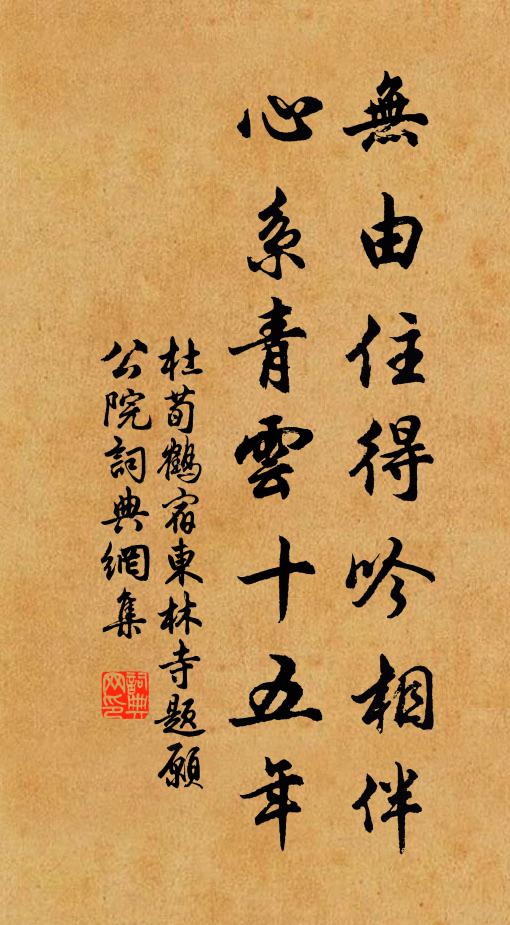 無由住得吟相伴
心系青雲十五年
杜荀鶴宿東林寺題願
公院詞典網集
詞典網印